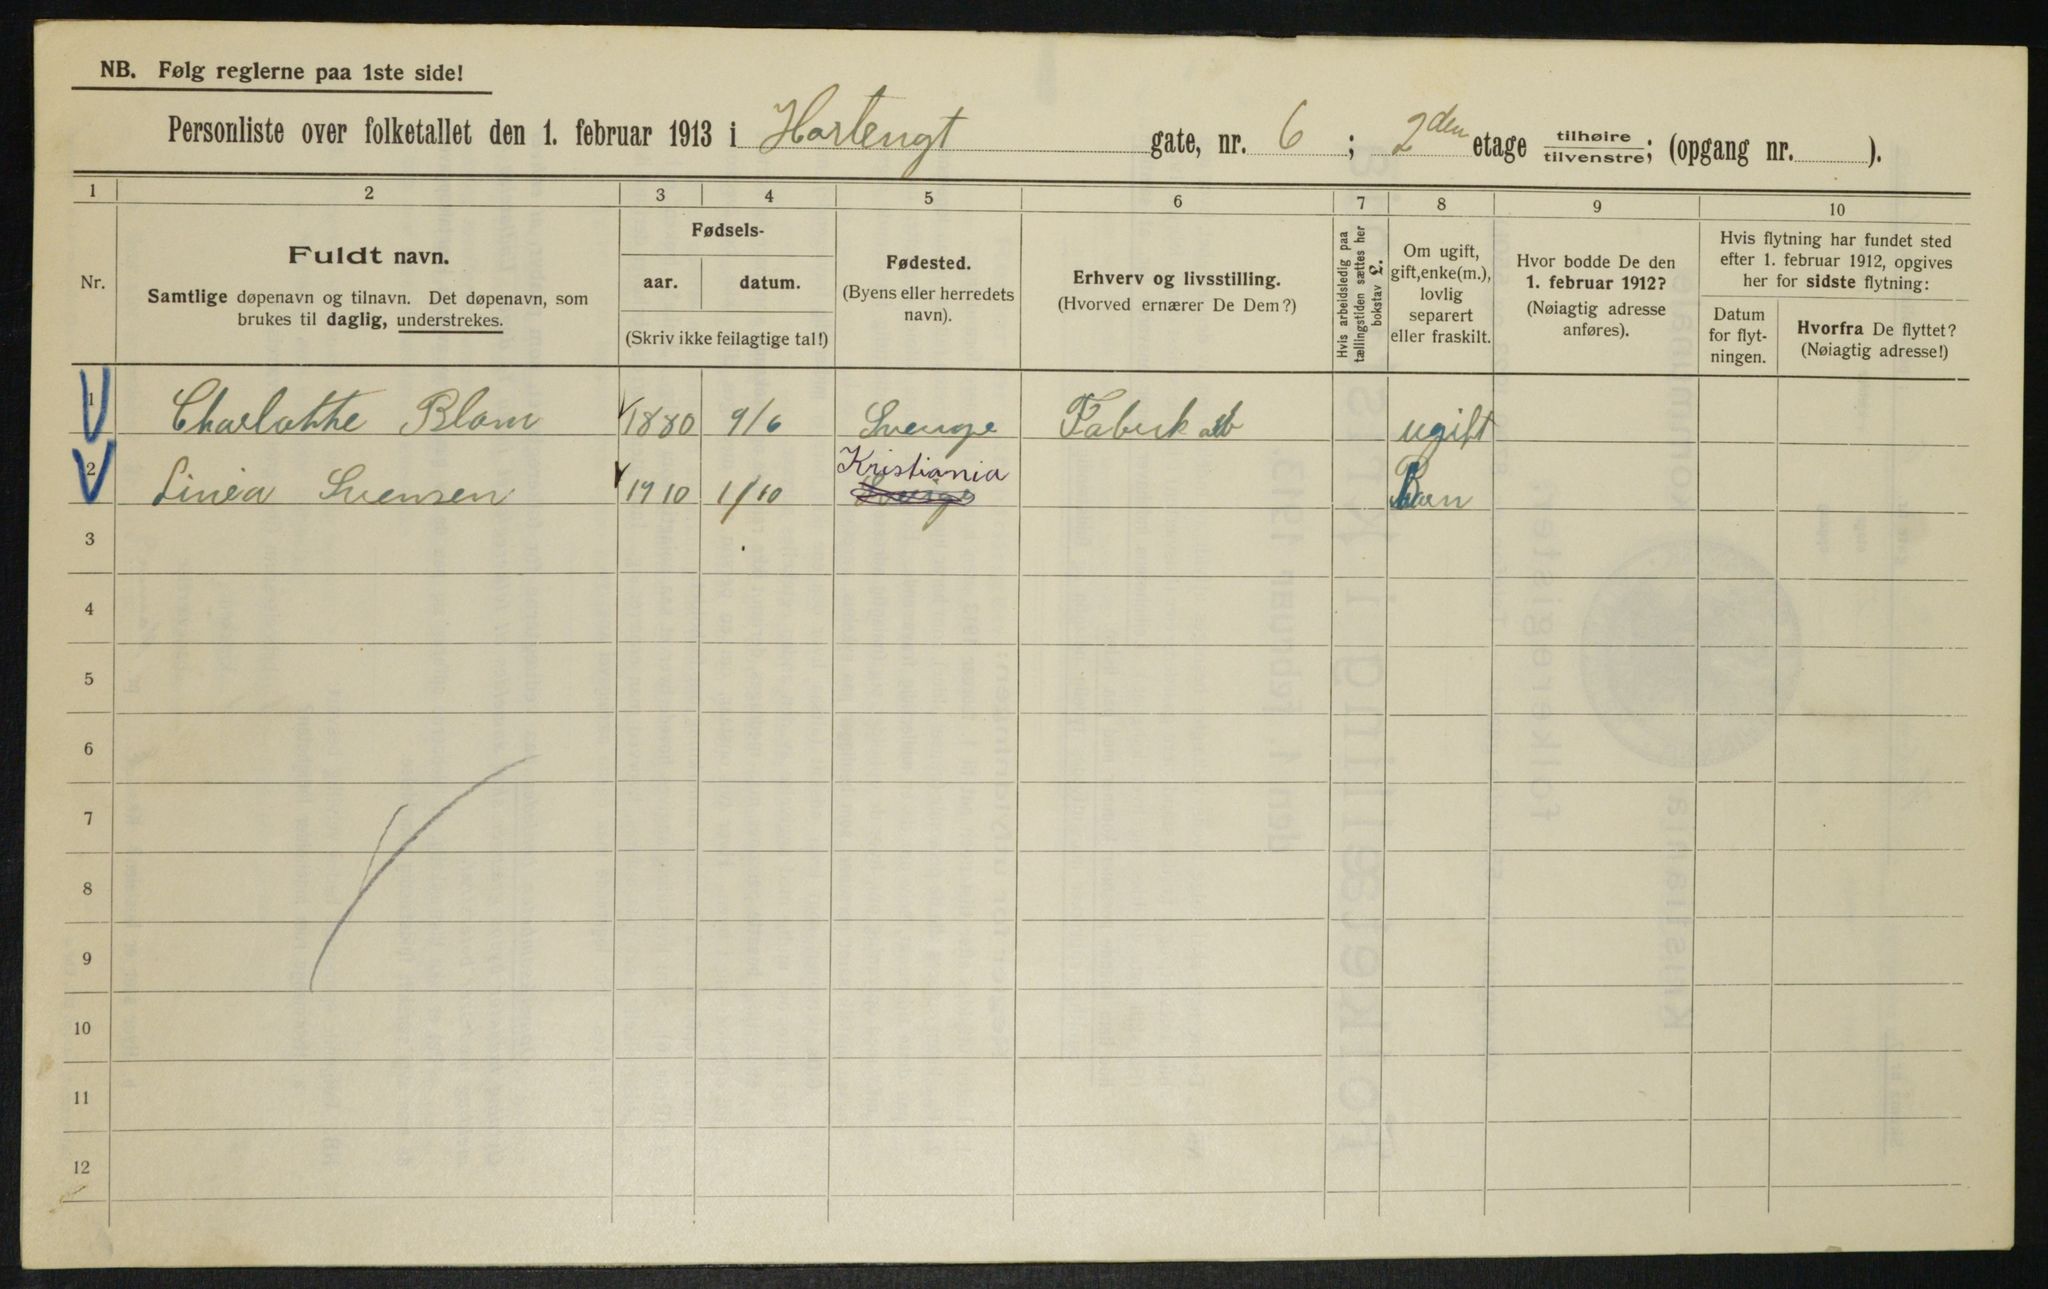 NB. Følg reglerne paa 1ste side!
Personliste over folketallet den 1. februar 1913 i Hortengt gate, nr. 6 ; 2den etage tilhøire tilvenstre; (opgang nr. ).
1 2 3 4 5 6 7 8 9 10
Nr.
Fuldt navn.
Samtlige døpenavn og tilnavn. Det døpenavn, som
brukes til daglig, understrekes.
Fødsels-
aar. datum.
(Skriv ikke feilagtige tal!)
Fødested.
(Byens eller herredets
navn).
Erhverv og livsstilling.
(Hvorved ernærer De Dem?)
Hvis arbeidsledig paa
tællingstiden sættes her
bokstav L.
Om ugift,
gift, enke(m.),
lovlig
separert
eller fraskilt.
Hvor bodde De den
1. februar 1912?
(Nøiagtig adresse
anføres).
Hvis flytning har fundet sted
efter 1. februar 1912, opgives
her for sidste flytning:
Datum
for flyt-
ningen.
Hvorfra De flyttet?
(Nøiagtig adresse!)
1 Charlotte Blom 1880 9/6 Sverige Fabrik arb ugift
2 Linea Svensen 1910 1/10 Kristiania Sverige Barn
3
4
5
6
7
8
9
10
11
12